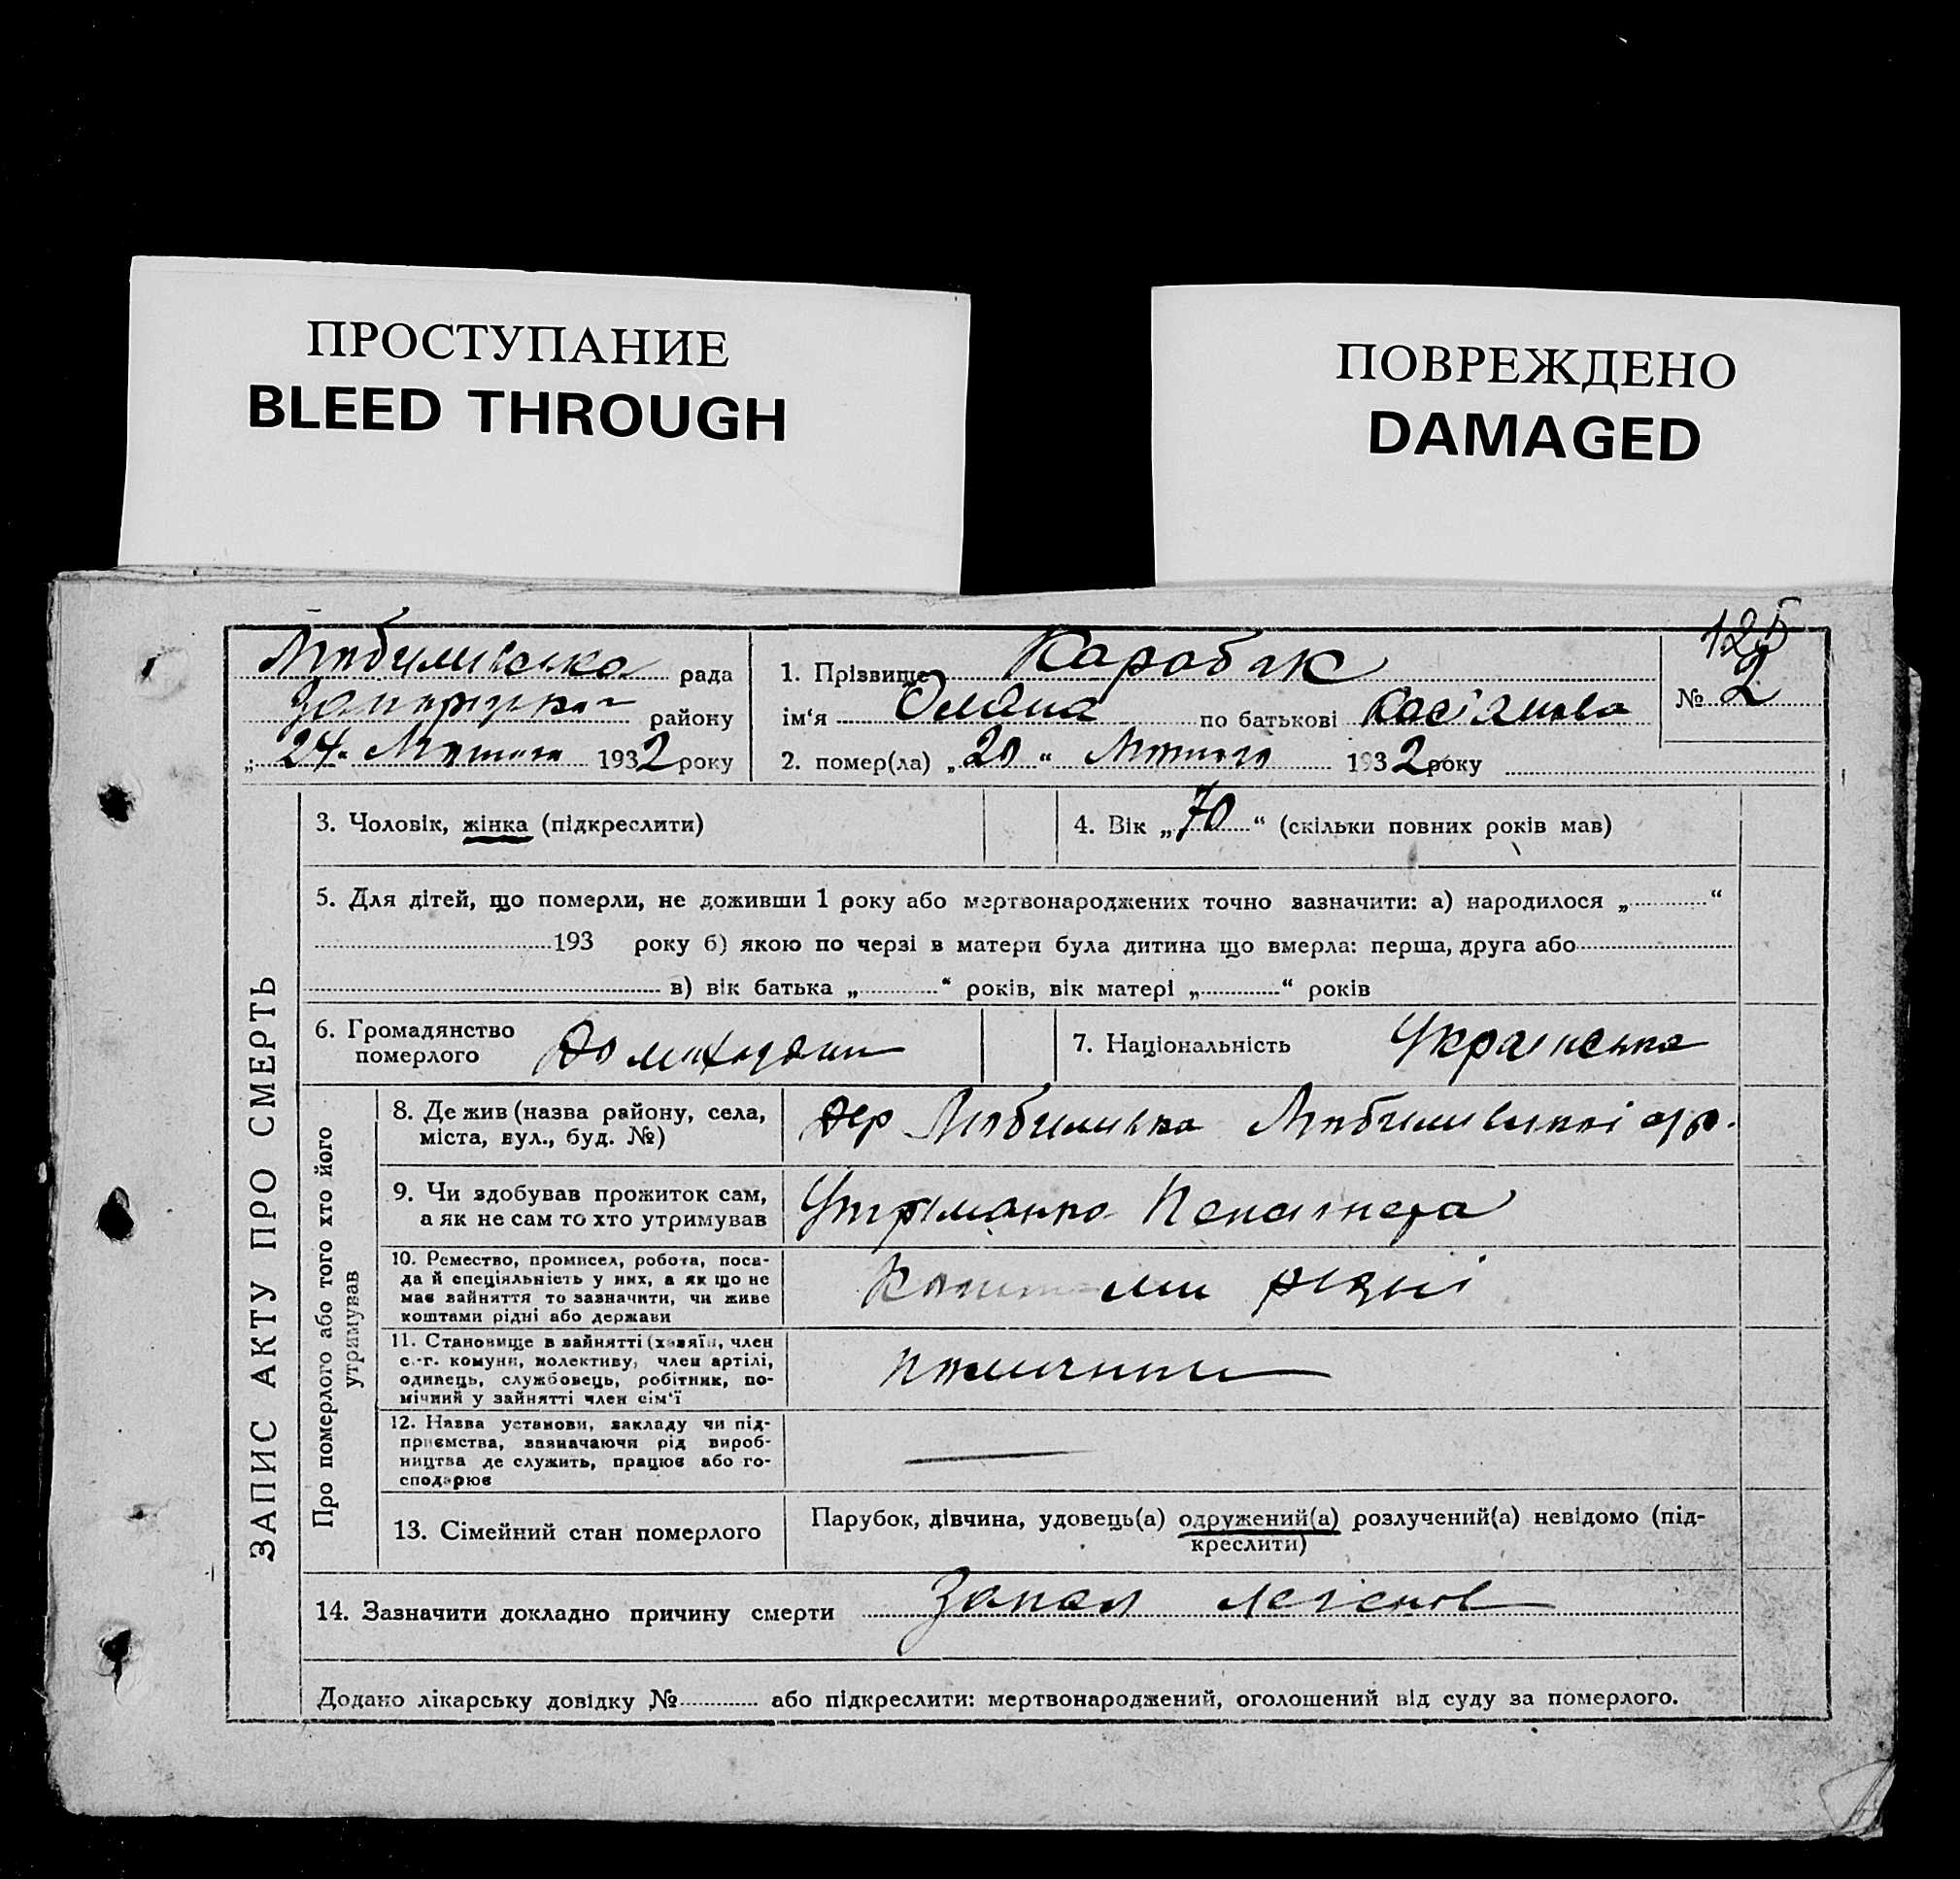 ПРОСТУПАНИЕ
BLEED THROUGH
ПОВРЕЖДЕНО
DAMAGED
125
Любимівська рада
району
„24“ Лютого 1932 року
1. Прізвище Карабяк
ім‘я Оляна по батькові Кас'янова
2. помер(ла) „20“ Лютого 1932 року
№ 2
ЗАПИС АКТУ ПРО СМЕРТЬ
3. Чоловік, жінка (підкреслити)
4. Вік „70“ (скільки повних років мав)
5. Для дітей, що померли, не доживши 1 року або мертвонароджених точно зазначити: а) народилося „ “
193 року б) якою по черзі в матери була дитина що вмерла: перша, друга або
в) вік батька „ “ років, вік матері „ “ років
6. Громадянство
померлого
7. Національність Українська
Про померлого або того хто його
утримував
8. Де жив (назва району, села,
міста, вул., буд. №)
Любимівка Любимівської
9. Чи здобував прожиток сам,
а як не сам то хто утримував
Утриманка Пенсіонера
10. Ремество, промисел, робота, поса-
да й спеціяльність у них, а як що не
має зайняття то зазначити, чи живе
коштами рідні або держави
Коштами рідні
11. Становище в зайнятті (хазяїн, член
с.-г. комуни, колективу, член артілі,
одинець, службовець, робітник, по-
мічний у зайнятті член сім‘ї
12. Назва установи, закладу чи під-
приємства, зазначаючи рід вироб-
ництва де служить, працює або го-
сподарює
13. Сімейний стан померлого
Парубок, дівчина, удовець(а) одружений(а) розлучений(а) невідомо (під-
креслити)
14. Зазначити докладно причину смерти Запал легенів
Додано лікарську довідку № або підкреслити: мертвонароджений, оголошений від суду за померлого.